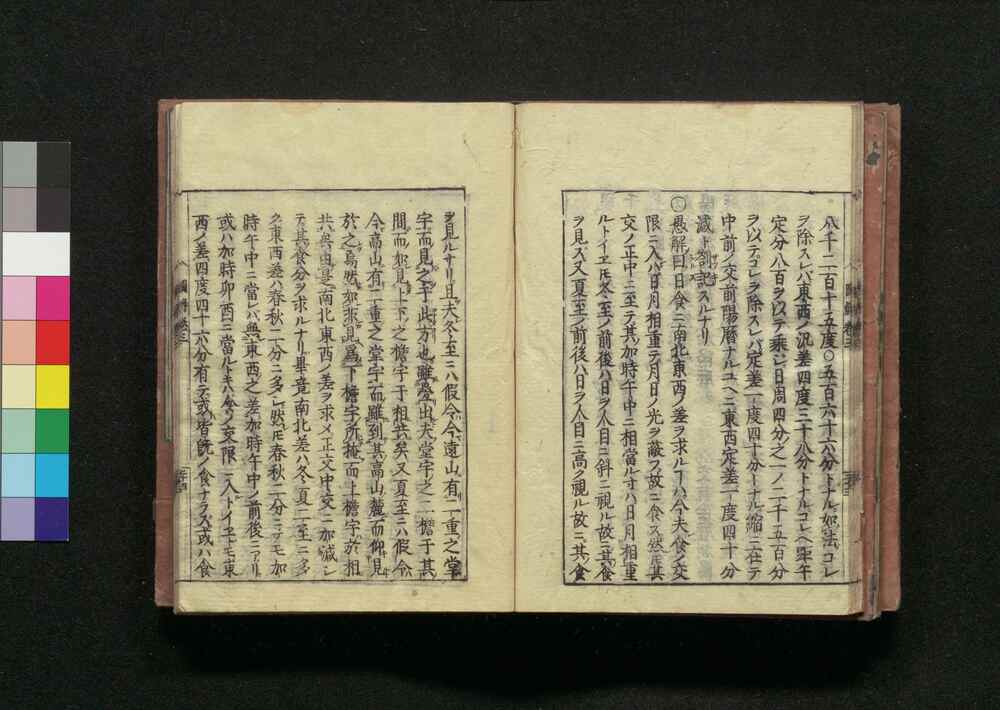 八千二百十五度〇五百六十六分トナル如法コレ
ヲ除スレバ東西ノ汎差四度三十八分トナルコレヘ距午
定分八百ヲ以テ乗シ日周四分之一ノ二千五百分
ヲ以テコレヲ除スレバ定差一度四十分トナル縮ニ在テ
中前ノ交前陽暦ナルユヘニ東西定差一度四十分
減ト劄記スルナリ
愚解曰日食ニ南北東西ノ差ヲ求ルヿハ今夫食ノ交
限ニ入バ日月相重テ月日ノ光ヲ蔽フ故ニ食ス然𪜈其
交ノ正中ニ至テ其加時午中ニ相當ルオハ日月相重
ルトイヱ𪜈冬至ノ前後ハ日ヲ人目ニ斜ニ視ル故ニ其食
ヲ見ズ又夏至ノ前後ハ日ヲ人目ニ高ク視ル故ニ其食
ヲ見ルナリ且夫冬至ニハ假令今遠山有二重之堂
宇而見之于此方也雖登出大堂宇之一檐于其
間而如見上下之檐宇于相共矣又夏至ニハ假令
今高山有二重之堂宇而雖到其高山麓而仰見
於之焉然如張見爲下檐宇所掩而上檐宇於相
共矣由是南北東西ノ差ヲ求メ正交中交ニ加減シ
テ其食分ヲ求ルナリ畢竟南北差ハ冬夏二至ニ多
ク東西差ハ春秋二分ニ多シ然𪜈春秋二分ニテモ加
時午中ニ當レバ無東西之差加時午中ノ前後ニアリ
或ハ加時卯酉ニ當ルトキハ今ノ交限ニ入トイヱ𪜈モ東
西ノ差四度四十六分有テ或皆既ノ食ナラズ或ハ食